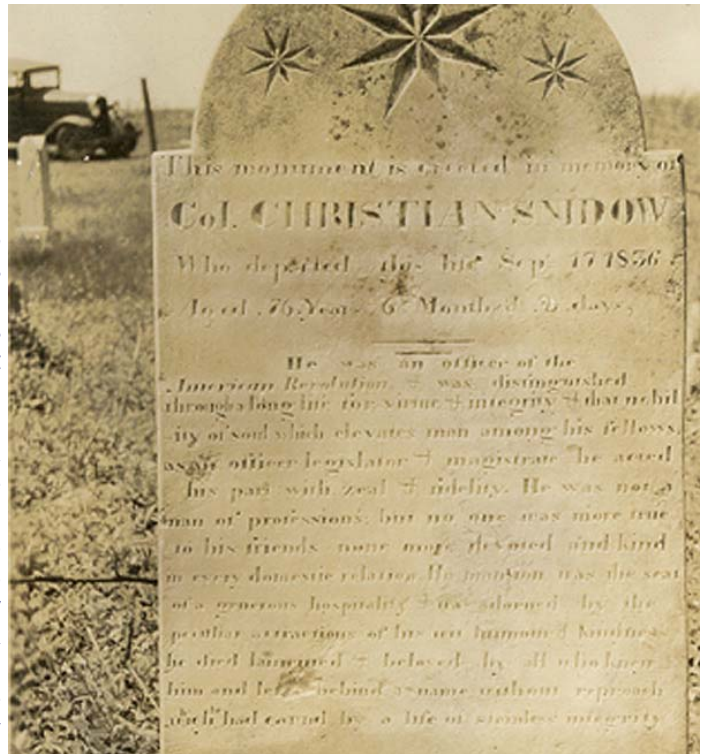 This monument is erected in memory of
Col. CHRISTIAN SNIDOW
Who departed this life Sept 17 1836
Aged 76 Years 6 Months & days,
He was an officer of the
American Revolution, & was distinguished
through a long life for virtue & integrity & that nobil
ity of soul which elevates man among his fellows,
as an officer legislator & magistrate he acted
his part with zeal & fidelity. He was not a
man of professions; but no one was more true
to his friends none more devoted and kind
in every domestic relation. His mansion was the seat
of a generous hospitality & was adorned by the
peculiar attractions of his wit humour & kindness
he died lamented & beloved by all who knew
him and left behind a name without reproach
which had earned by a life of stainless integrity